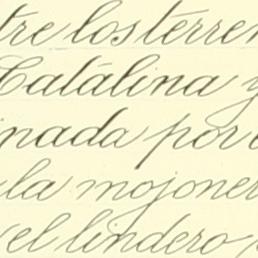 tre los terren
Catálina y
inada por
la mojoner
el lindero